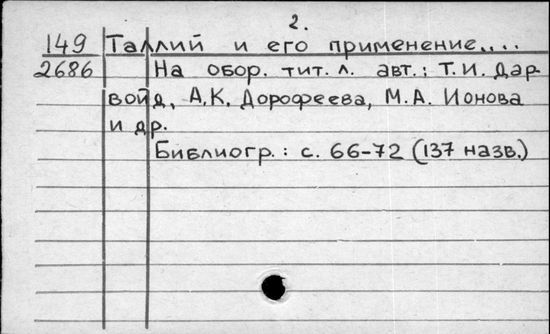 2.
149 Таллий и его применение....
2686 На обор. тит. л. авт.: Т.И. Дар-
войд, А.К. Дорофеева, М.А. Ионова
и др.
Библиогр.: с. 66-72 (137 назв.)